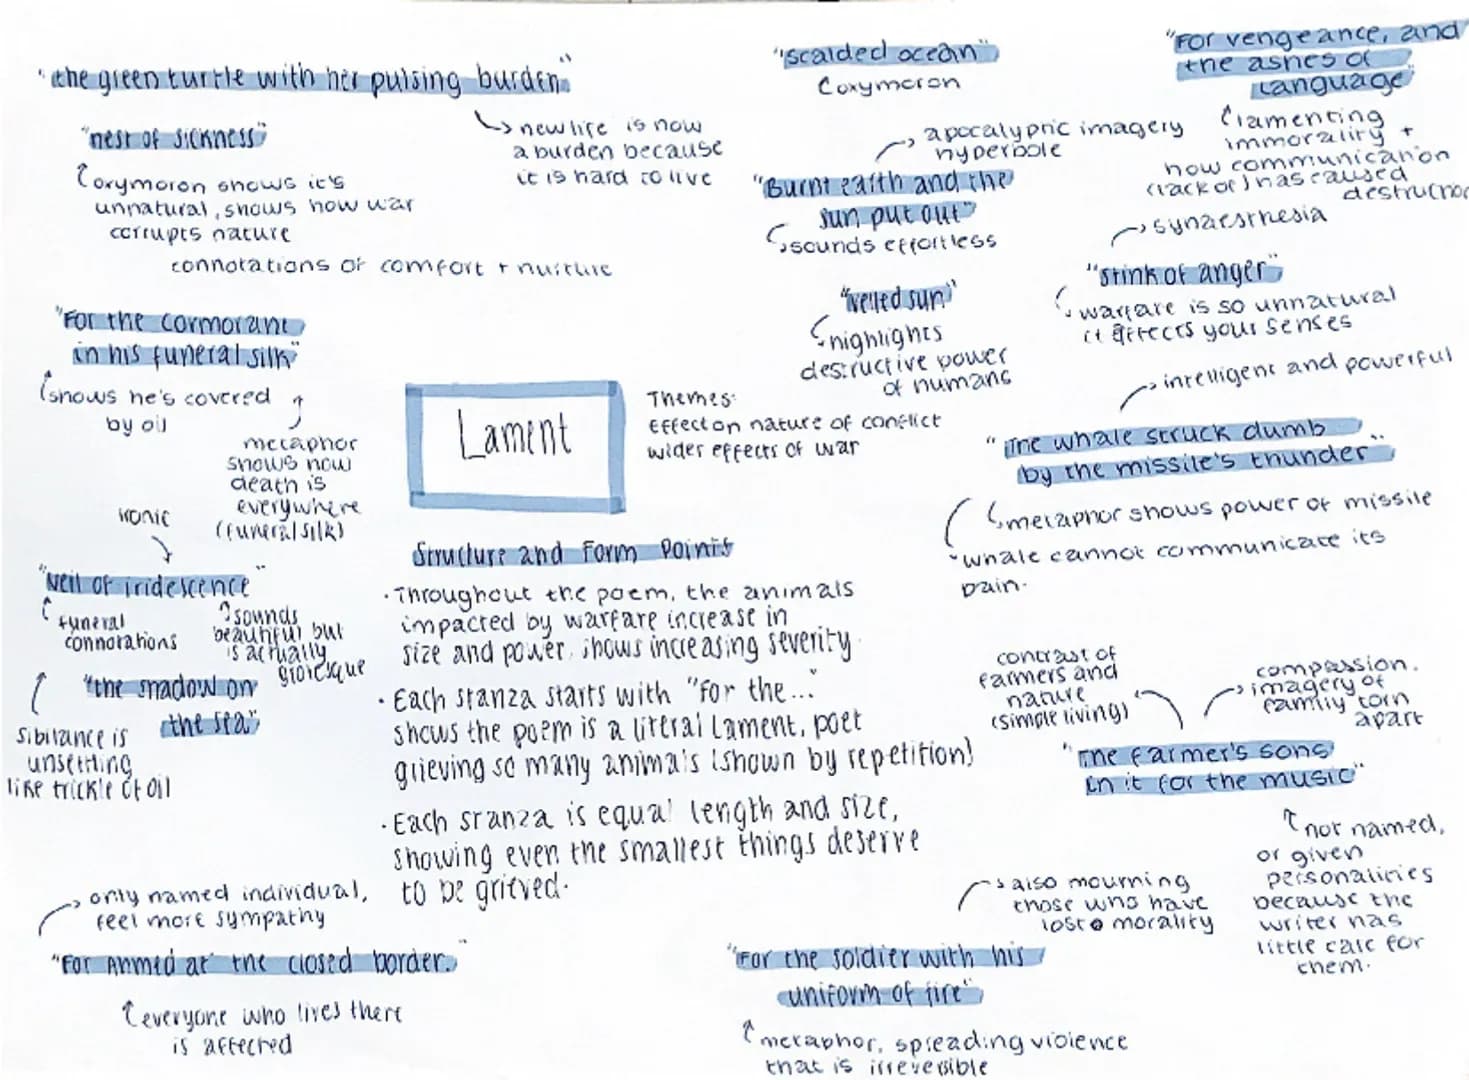 "the green turtle with her pulsing burden"
new life is now
a burden because
it is hard to live
"nest of sickness"
oxymoron shows it's
unnatural, shows how war
corrupts nature
connotations of comfort + nurture
"For the cormorant
in his funeral silk"
shows he's covered
by oil
metaphor
shows how
death is
everywhere
(funeral silk)
ironic
"veil of iridescence"
funeral
connotations
sounds
beautiful but
is actually
grotesque
"the shadow on
the sea"
sibilance is
unsettling
like trickle of oil
only named individual,
feel more sympathy
"For Ahmed at the closed border."
everyone who lives there
is affected
Lament
Themes:
Effect on nature of conflict
wider effects of war
Structure and Form Points
· Throughout the poem, the animals
impacted by warfare increase in
size and power, shows increasing severity.
· Each stanza starts with "For the..."
shows the poem is a literal lament, poet
grieving so many animals (shown by repetition)
· Each stanza is equal length and size,
showing even the smallest things deserve
to be grieved.
"scalded ocean"
oxymoron
apocalyptic imagery
hyperbole
"Burnt earth and the
sun put out"
sounds effortless
"veiled sun"
highlights
destructive power
of humans
"For vengeance, and
the ashes of
language"
lamenting
immorality +
how communication
(lack of) has caused
destruction
synaesthesia
"stink of anger"
warfare is so unnatural
it affects your senses
intelligent and powerful
"The whale struck dumb
by the missile's thunder"
metaphor shows power of missile
whale cannot communicate its
pain.
contrast of
farmers and
nature
(simple living)
compassion.
imagery of
family torn
apart
"The farmer's sons
in it for the music"
not named,
or given
personalities
because the
writer has
little care for
them.
also mourning
those who have
lost morality
"For the soldier with his
uniform of fire"
metaphor, spreading violence
that is irreversible